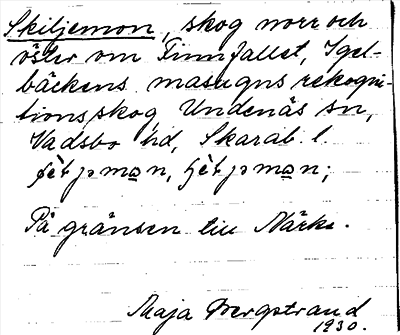 Skiljemon, skog norr och
öster om Finnfallet, Igel-
bäckens masugns rekogni-
tionsskog Undenäs sn,
Vadsbo hd, Skarab. l.
På gränsen till Närke.
Maja Bergstrand
1930.